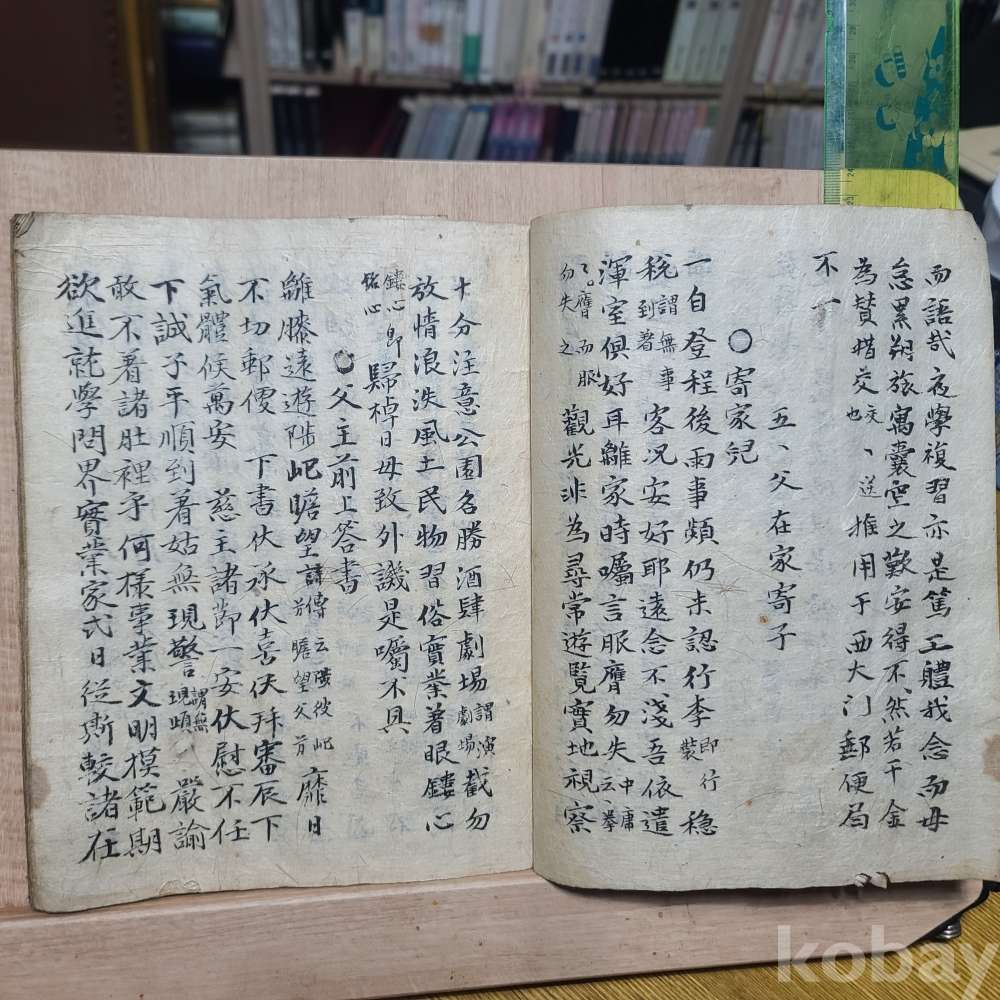 而語哉夜學複習亦是篤工體我念而毋
怠黑朔旅寓囊空之歎安得不然若干金
為賛措茭也送推用于西大门郵便局
不一
五、父在家寄子
○寄家兒
一自登程後雨事頻仍未認行李即行裝穏
稅謂到著無事客况安好耶遠念不淺吾依遣
渾室俱好耳離家時囑言服膺勿失中庸云、拳
膺而服勿失之觀光非為尋常遊覧實地視察
十分注意公園名勝酒肆劇場謂演劇場戱勿
放情浪泆風土民物習俗實業著眼鏤心
鏤心即銘心歸棹日毋致外譏是囑不具
○父主前上答書
離膝遠遊陟屺瞻望詩傳云陟彼屺兮瞻望父兮靡日
不切郵便下書伏承伏喜伏拜審辰下
氣體候萬安慈主諸節一安伏慰不任
下誠子平順到着姑無現警謂無現頉嚴諭
敢不着諸肚裡乎何樣事業文明摸範期
欲進就學問界實業家弍日從斯較諸在
kobay